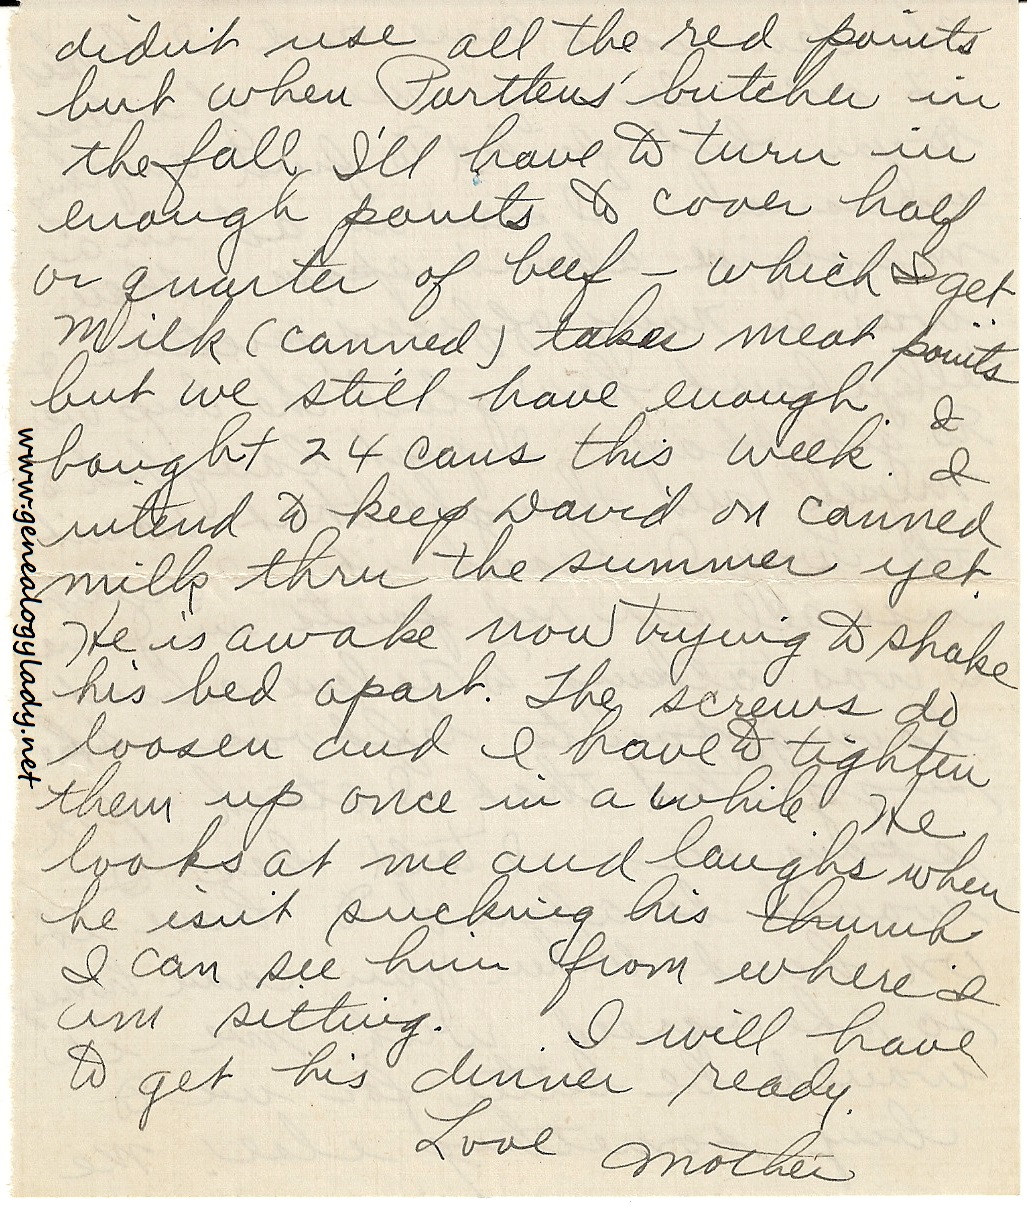 didn't use all the red points
but when Partens' butcher in
the fall, I'll have to turn in
enough points to cover half
or quarter of beef – which I get
Milk (canned) takes meat points
but we still have enough. I
bought 24 cans this week. I
intend to keep David on canned
milk thru the summer yet.
He is awake now trying to shake
his bed apart. The screws do
loosen and I have to tighten
them up once in a while. He
looks at me and laughs when
he isn't sucking his thumb
I can see him from where I
am sitting. I will have
to get his dinner ready.
Love Mother
www.genealogylady.net